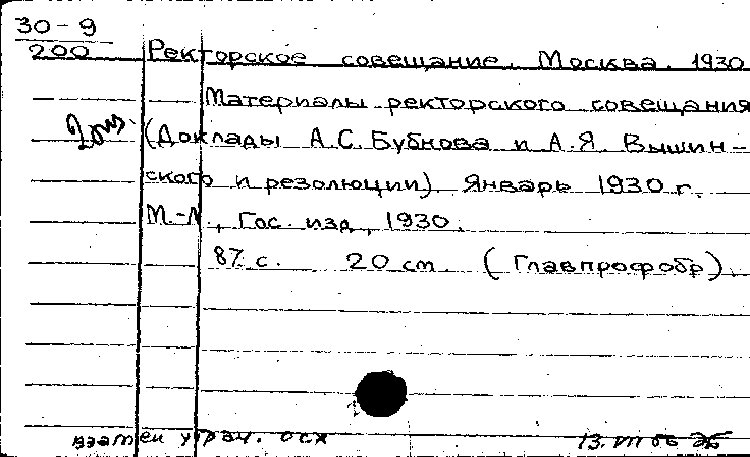 30-9
200
Ректорское совещание. Москва. 1930
Материалы ректорского совещания
(Доклады А.С. Бубнова и А.Я. Вышин-
ского и резолюции). Январь 1930 г.
М.-Л., Гос. изд., 1930.
87 с. 20 см. (Главпрофобр).
взамен утрач. осх
13. VII 66